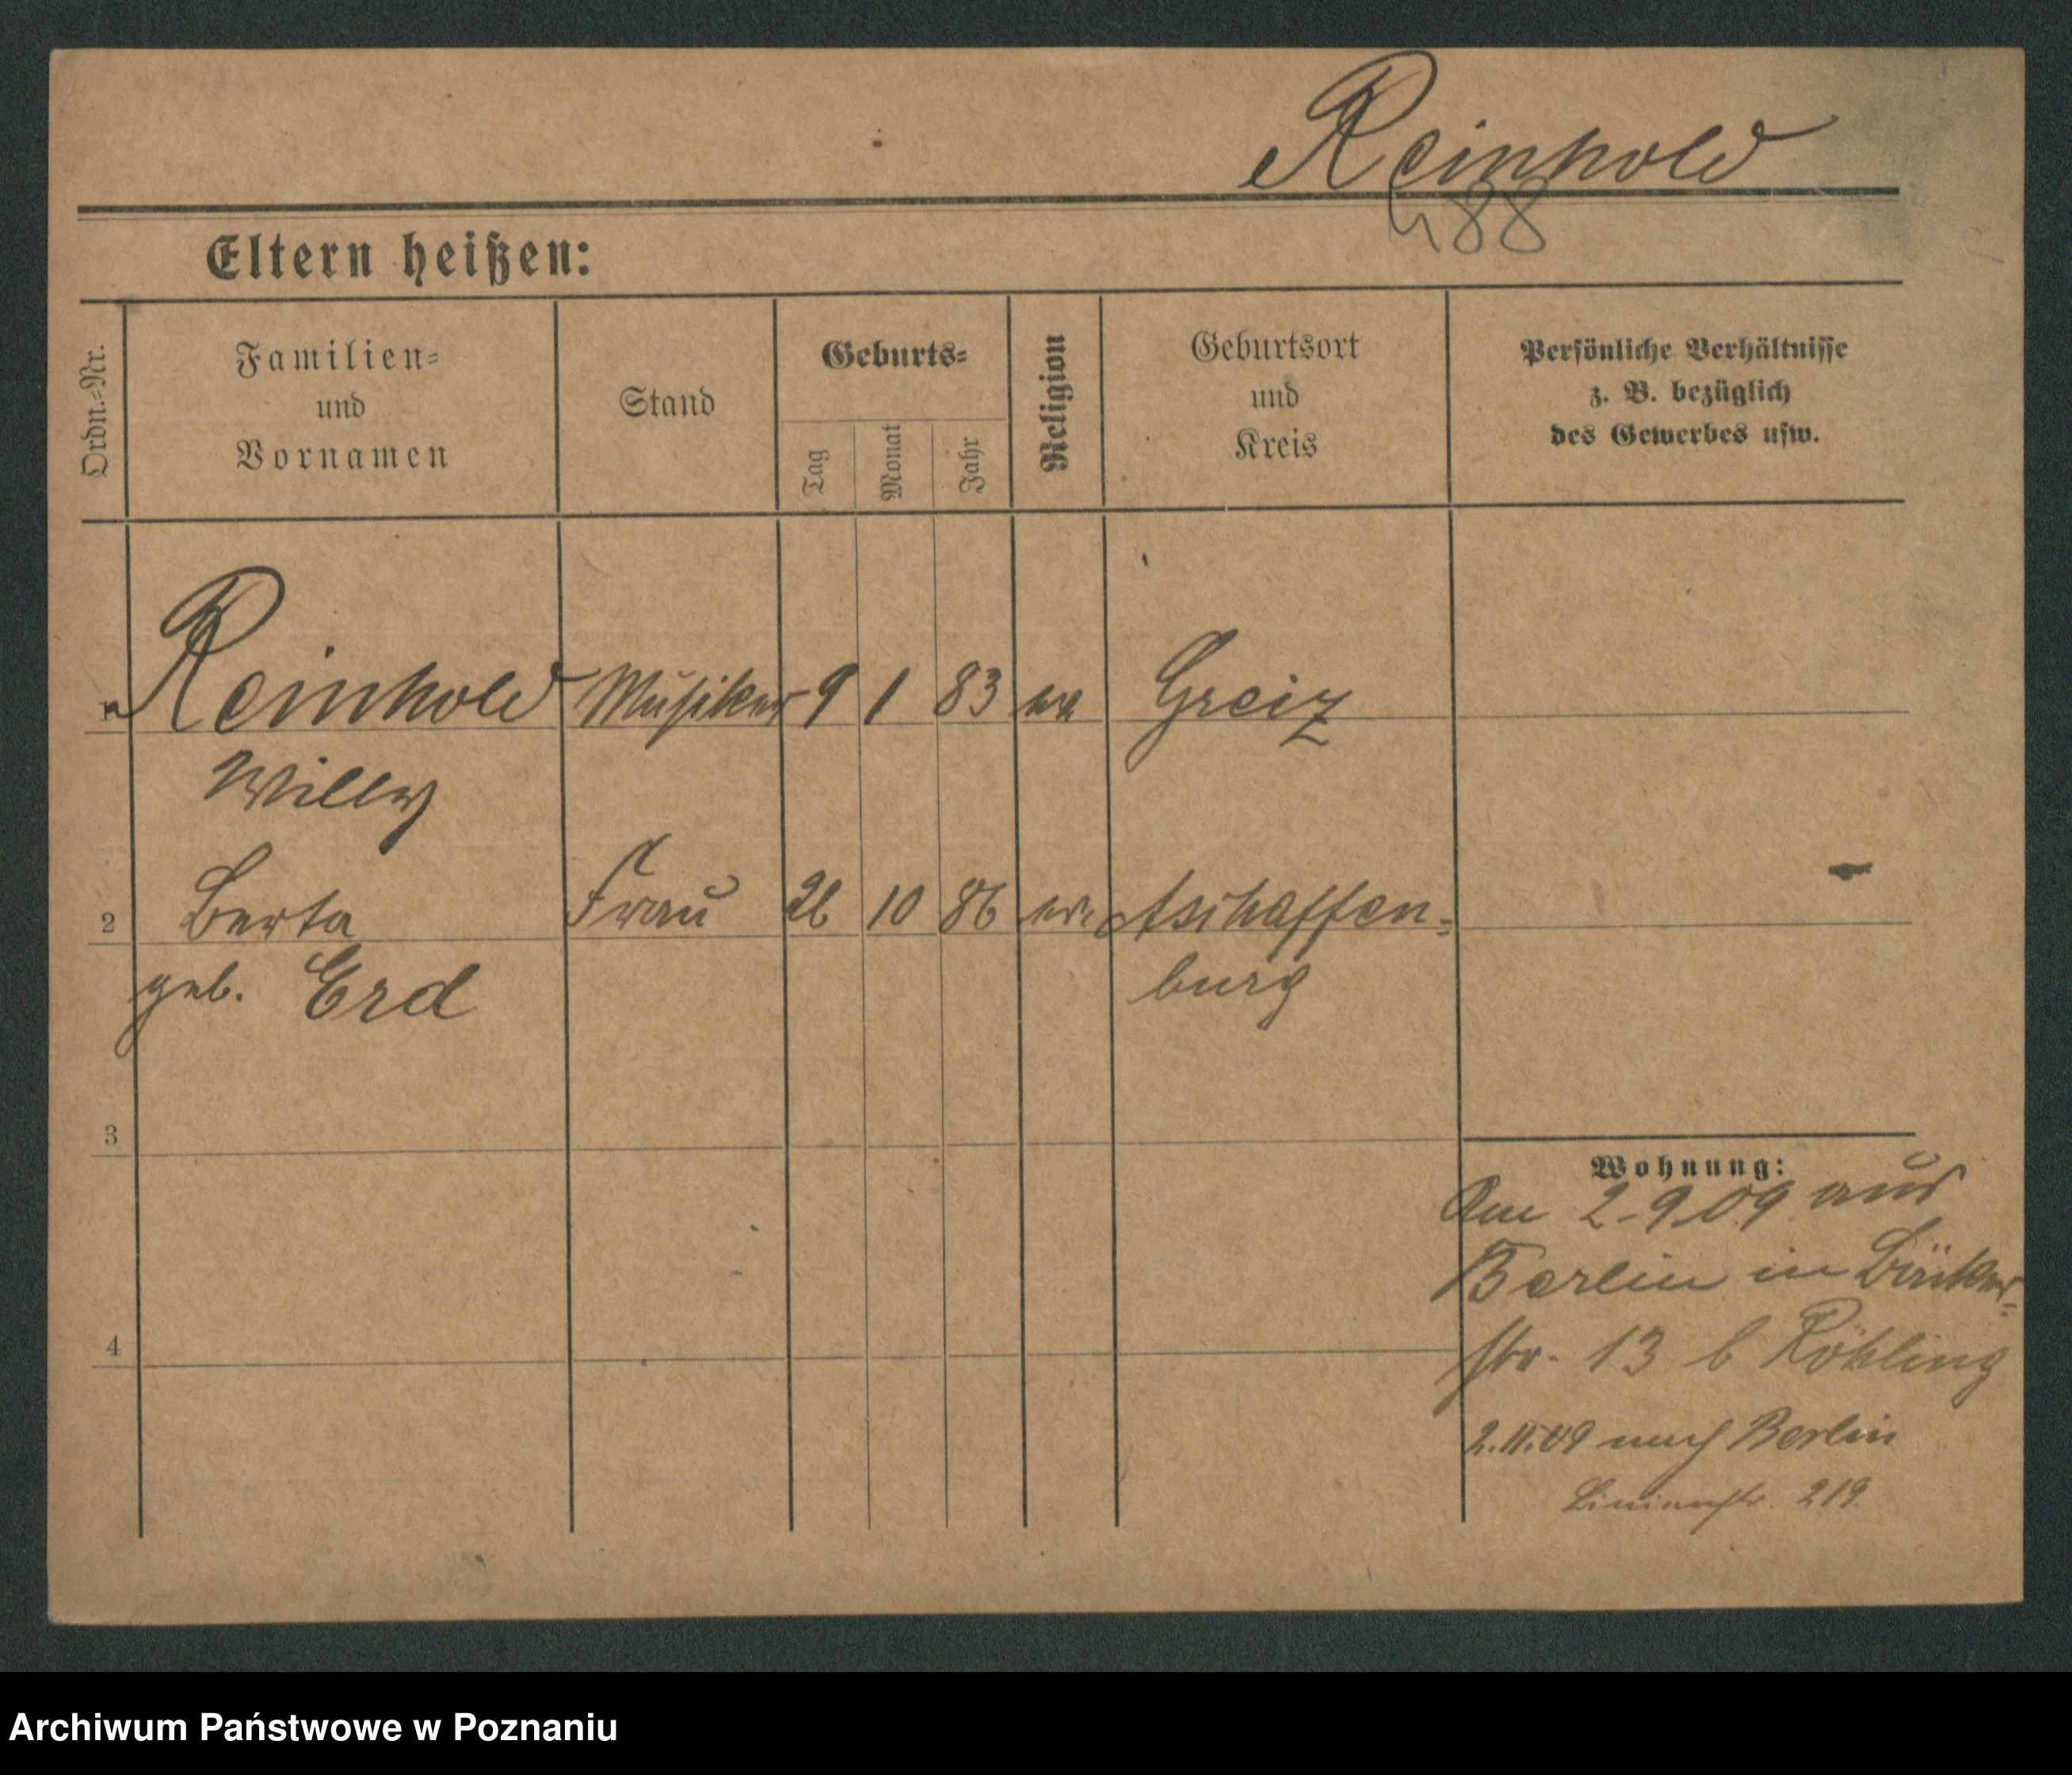 Reinhold
488
Eltern heißen:
Ordn.-Nr.
Familien-
und
Vornamen
Stand
Geburts-
Tag
Monat
Jahr
Religion
Geburtsort
und
Kreis
Persönliche Verhältnisse
z. B. bezüglich
des Gewerbes usw.
1 Reinhold Musiker 9 1 83 Greiz
Willy
2 Berta Frau 26 10 86 ev. Aschaffen-
geb. Erd burg
3
4
Wohnung:
Am 2.9.09 aus
Berlin in Bäcker-
str. 13 b Röhling
2.11.09 nach Berlin
Linienstr. 219
Archiwum Państwowe w Poznaniu